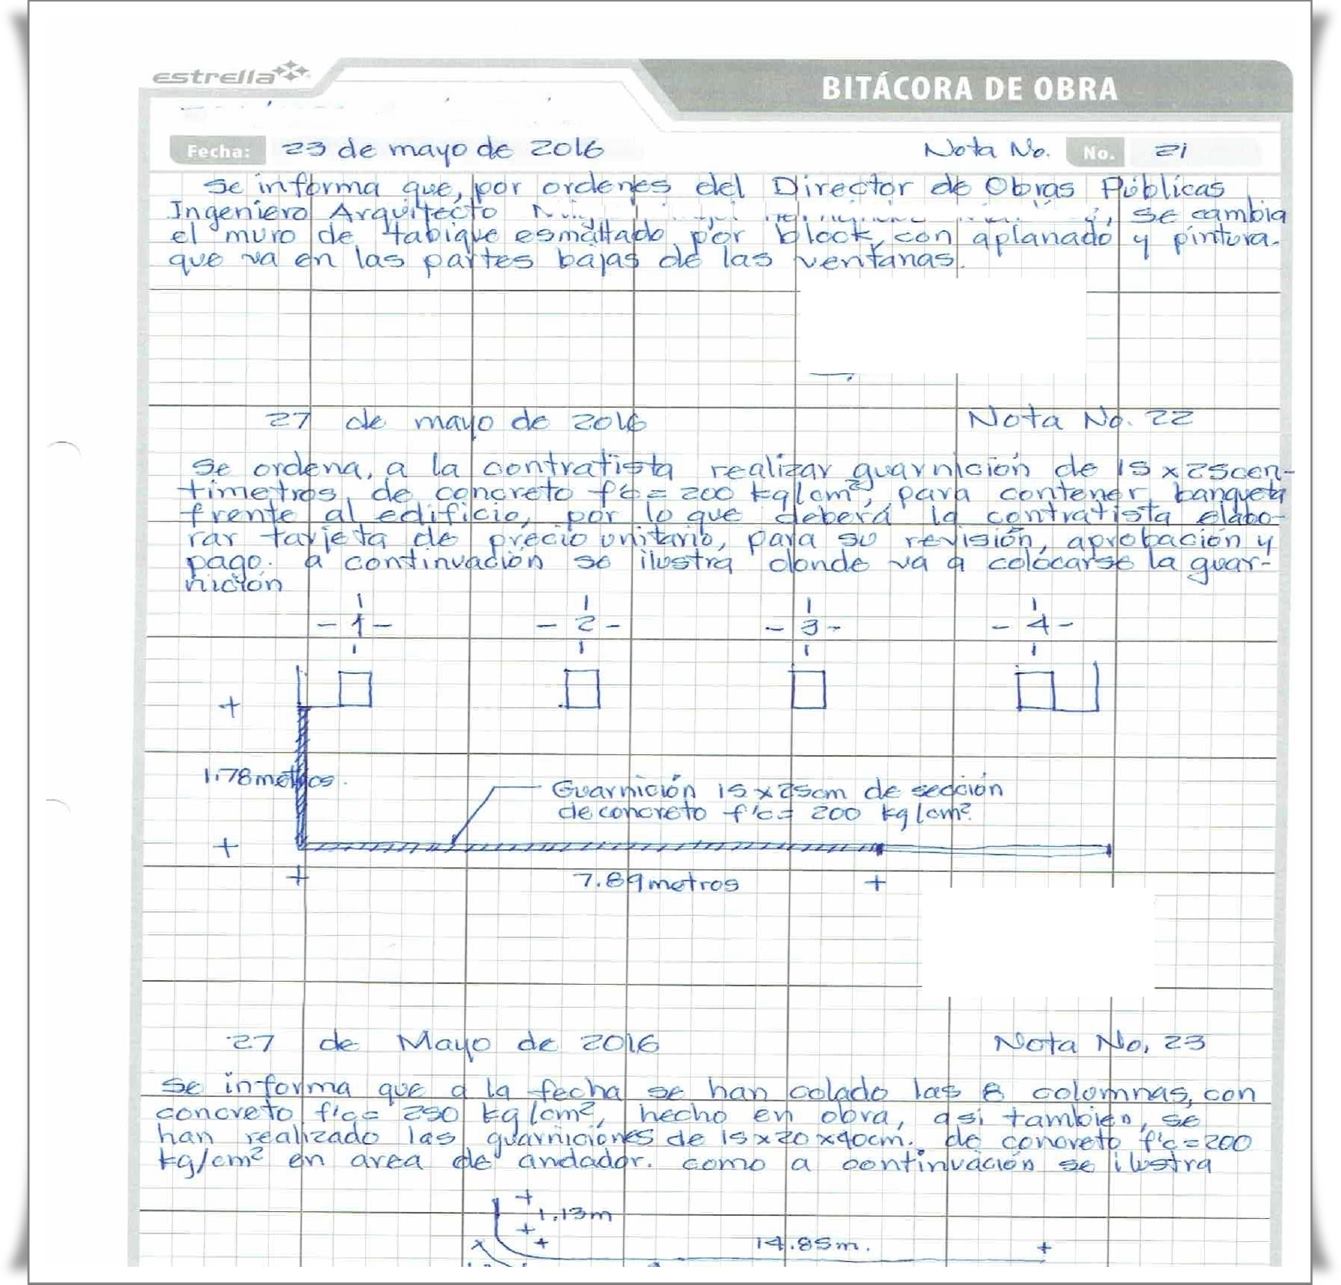 estrella
BITÁCORA DE OBRA
Fecha: 23 de mayo de 2016 Nota No. No. 21
Se informa que, por ordenes del Director de Obras Públicas
Ingeniero Arquitecto se cambia
el muro de tabique esmaltado por block, con aplanado y pintura.
que va en las partes bajas de las ventanas.
27 de mayo de 2016 Nota No. 22
Se ordena, a la contratista realizar guarnición de 15x25cen-
timetros, de concreto f'c= 200 kg/cm², para contener banqueta
frente al edificio, por lo que deberá la contratista elabo-
rar tarjeta de precio unitario, para su revisión, aprobación y
pago. a continuación se ilustra donde va a colocarse la guar-
nición
-1- -2- -3- -4-
1.78 metros.
Guarnición 15x25cm de sección
de concreto f'c= 200 kg/cm².
7.89 metros
27 de Mayo de 2016 Nota No. 23
Se informa que a la fecha se han colado las 8 columnas, con
concreto f'c= 250 kg/cm², hecho en obra, asi tambien, se
han realizado las guarniciones de 15x20x40cm. de concreto f'c=200
kg/cm² en area de andador. como a continuación se ilustra
1.13m
14.85m.